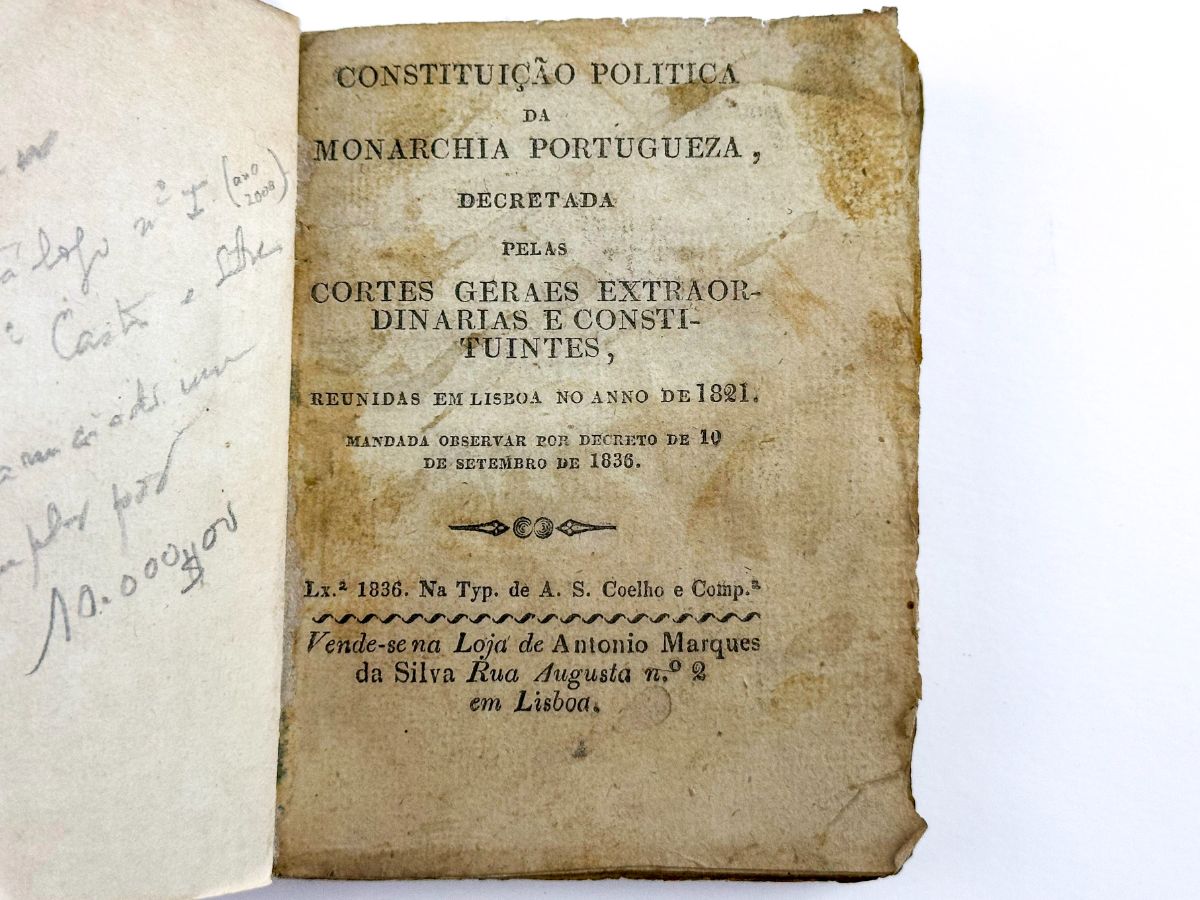 nº I. (ano
2000)
por
10.000$00
CONSTITUIÇÃO POLITICA
DA
MONARCHIA PORTUGUEZA,
DECRETADA
PELAS
CORTES GERAES EXTRAOR-
DINARIAS E CONSTI-
TUINTES,
REUNIDAS EM LISBOA NO ANNO DE 1821.
MANDADA OBSERVAR POR DECRETO DE 10
DE SETEMBRO DE 1836.
Lx.ª 1836. Na Typ. de A. S. Coelho e Comp.ª
Vende-se na Loja de Antonio Marques
da Silva Rua Augusta n.º 2
em Lisboa.